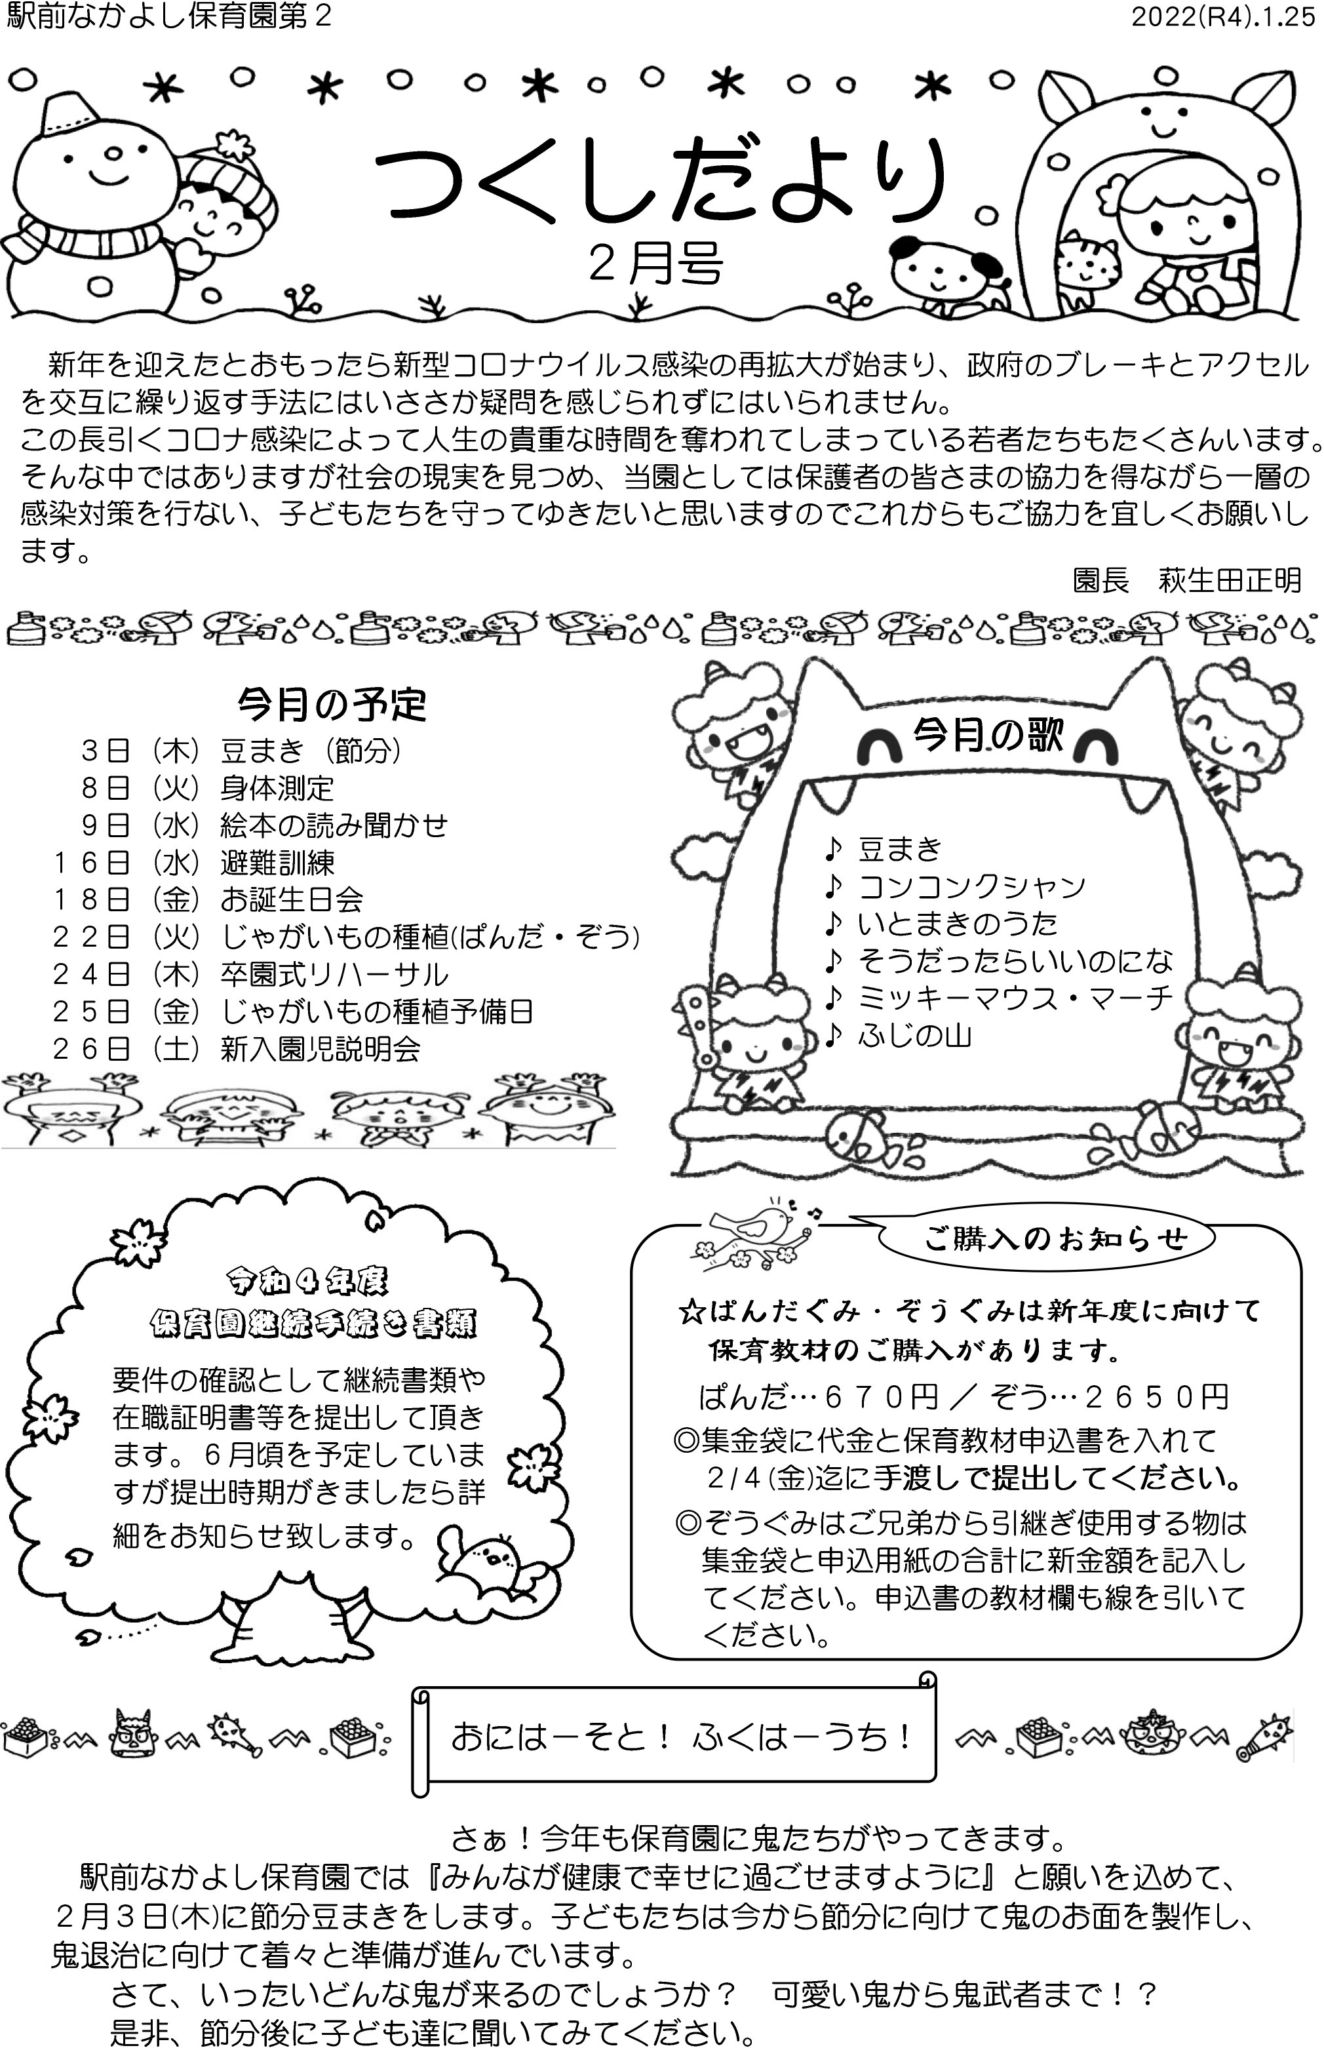 駅前なかよし保育園第２
2022(R4).1.25
つくしだより
２月号
新年を迎えたとおもったら新型コロナウイルス感染の再拡大が始まり、政府のブレーキとアクセル
を交互に繰り返す手法にはいささか疑問を感じられずにはいられません。
この長引くコロナ感染によって人生の貴重な時間を奪われてしまっている若者たちもたくさんいます。
そんな中ではありますが社会の現実を見つめ、当園としては保護者の皆さまの協力を得ながら一層の
感染対策を行ない、子どもたちを守ってゆきたいと思いますのでこれからもご協力を宜しくお願いし
ます。
園長　萩生田正明
今月の予定
３日（木）豆まき（節分）
８日（火）身体測定
９日（水）絵本の読み聞かせ
１６日（水）避難訓練
１８日（金）お誕生日会
２２日（火）じゃがいもの種植(ぱんだ・ぞう)
２４日（木）卒園式リハーサル
２５日（金）じゃがいもの種植予備日
２６日（土）新入園児説明会
今月の歌
♪ 豆まき
♪ コンコンクシャン
♪ いとまきのうた
♪ そうだったらいいのにな
♪ ミッキーマウス・マーチ
♪ ふじの山
令和４年度
保育園継続手続き書類
要件の確認として継続書類や
在職証明書等を提出して頂き
ます。６月頃を予定していま
すが提出時期がきましたら詳
細をお知らせ致します。
ご購入のお知らせ
☆ぱんだぐみ・ぞうぐみは新年度に向けて
保育教材のご購入があります。
ぱんだ…６７０円 ／ ぞう…２６５０円
◎集金袋に代金と保育教材申込書を入れて
２/４(金)迄に手渡しで提出してください。
◎ぞうぐみはご兄弟から引継ぎ使用する物は
集金袋と申込用紙の合計に新金額を記入し
てください。申込書の教材欄も線を引いて
ください。
おにはーそと！ ふくはーうち！
さぁ！今年も保育園に鬼たちがやってきます。
駅前なかよし保育園では『みんなが健康で幸せに過ごせますように』と願いを込めて、
２月３日(木)に節分豆まきをします。子どもたちは今から節分に向けて鬼のお面を製作し、
鬼退治に向けて着々と準備が進んでいます。
さて、いったいどんな鬼が来るのでしょうか？　可愛い鬼から鬼武者まで！？
是非、節分後に子ども達に聞いてみてください。